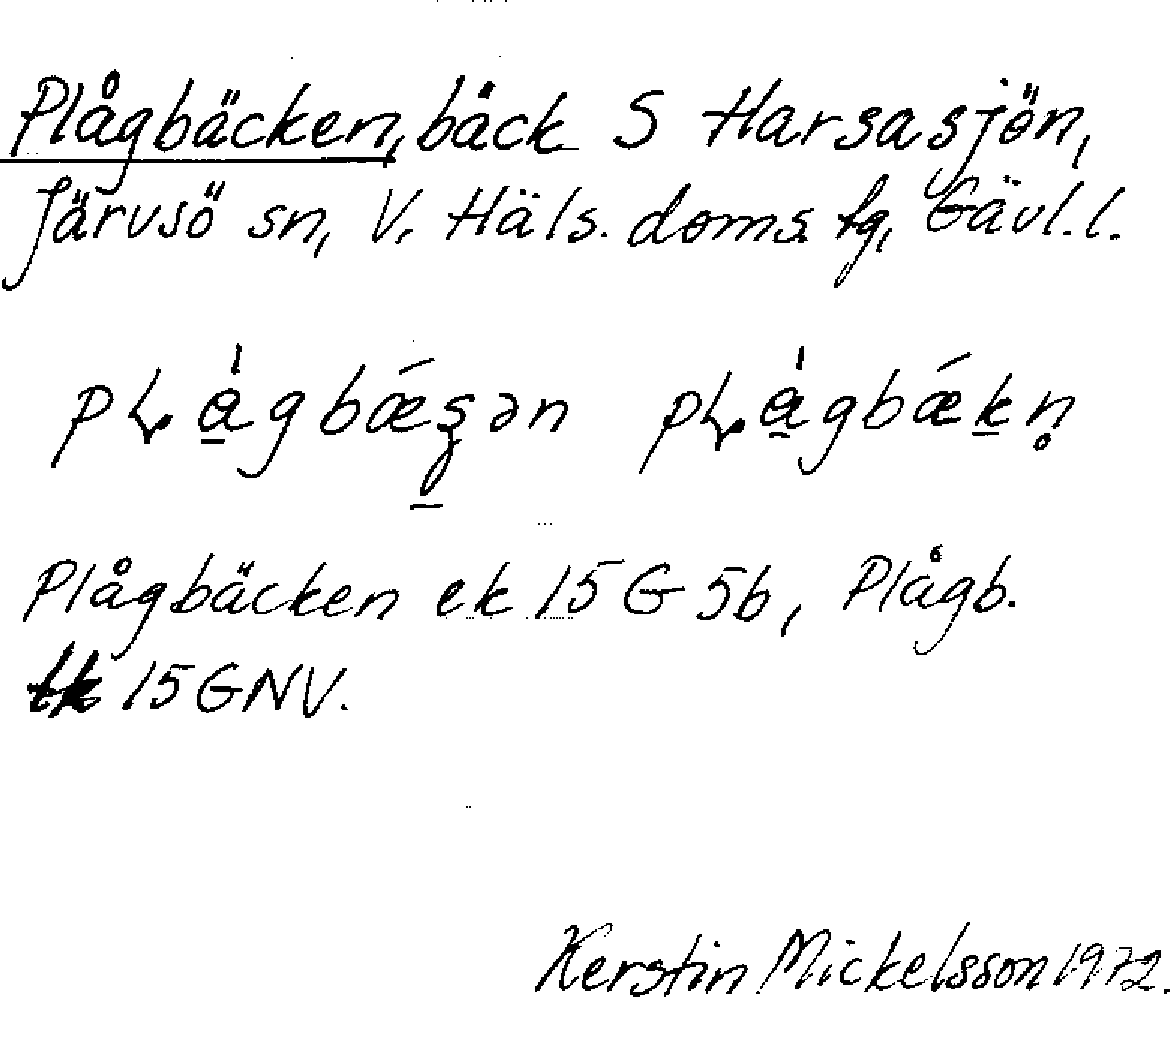 Plågbäcken, bäck S Harsasjön,
Järvsö sn, V. Häls. doms. tg, Gävl. l.
Plågbäcken ek 15 G 5b, Plågb.
tk 15 GNV.
Kerstin Mickelsson 1972.